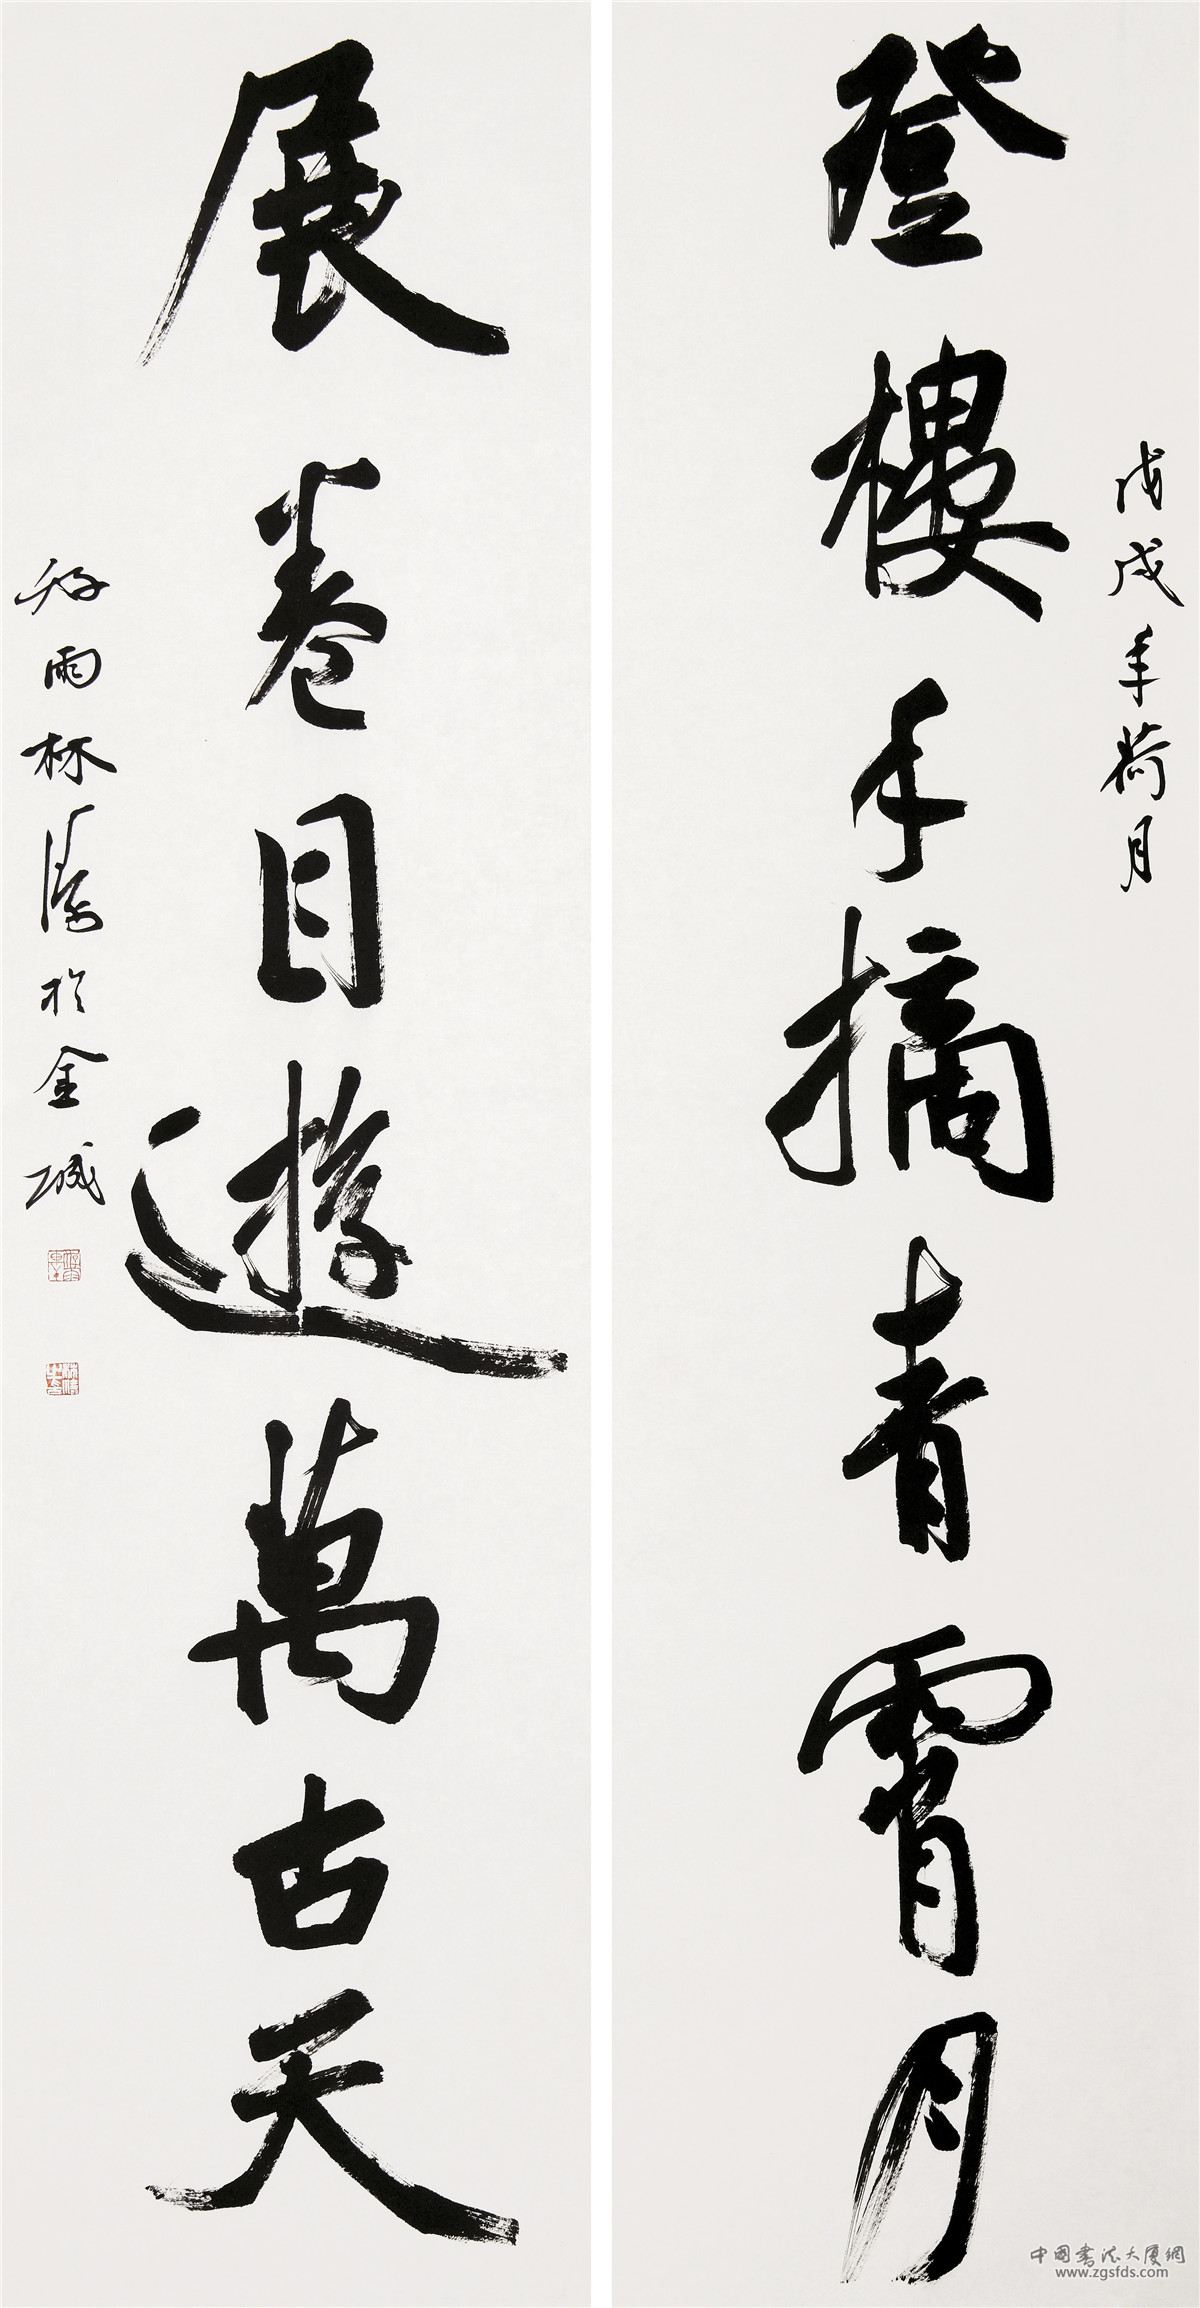 戊戌年荷月
登樓手摘青霄月
展卷目遊萬古天
好雨林濤於金城
中國書法大廈網
www.zgsfds.com